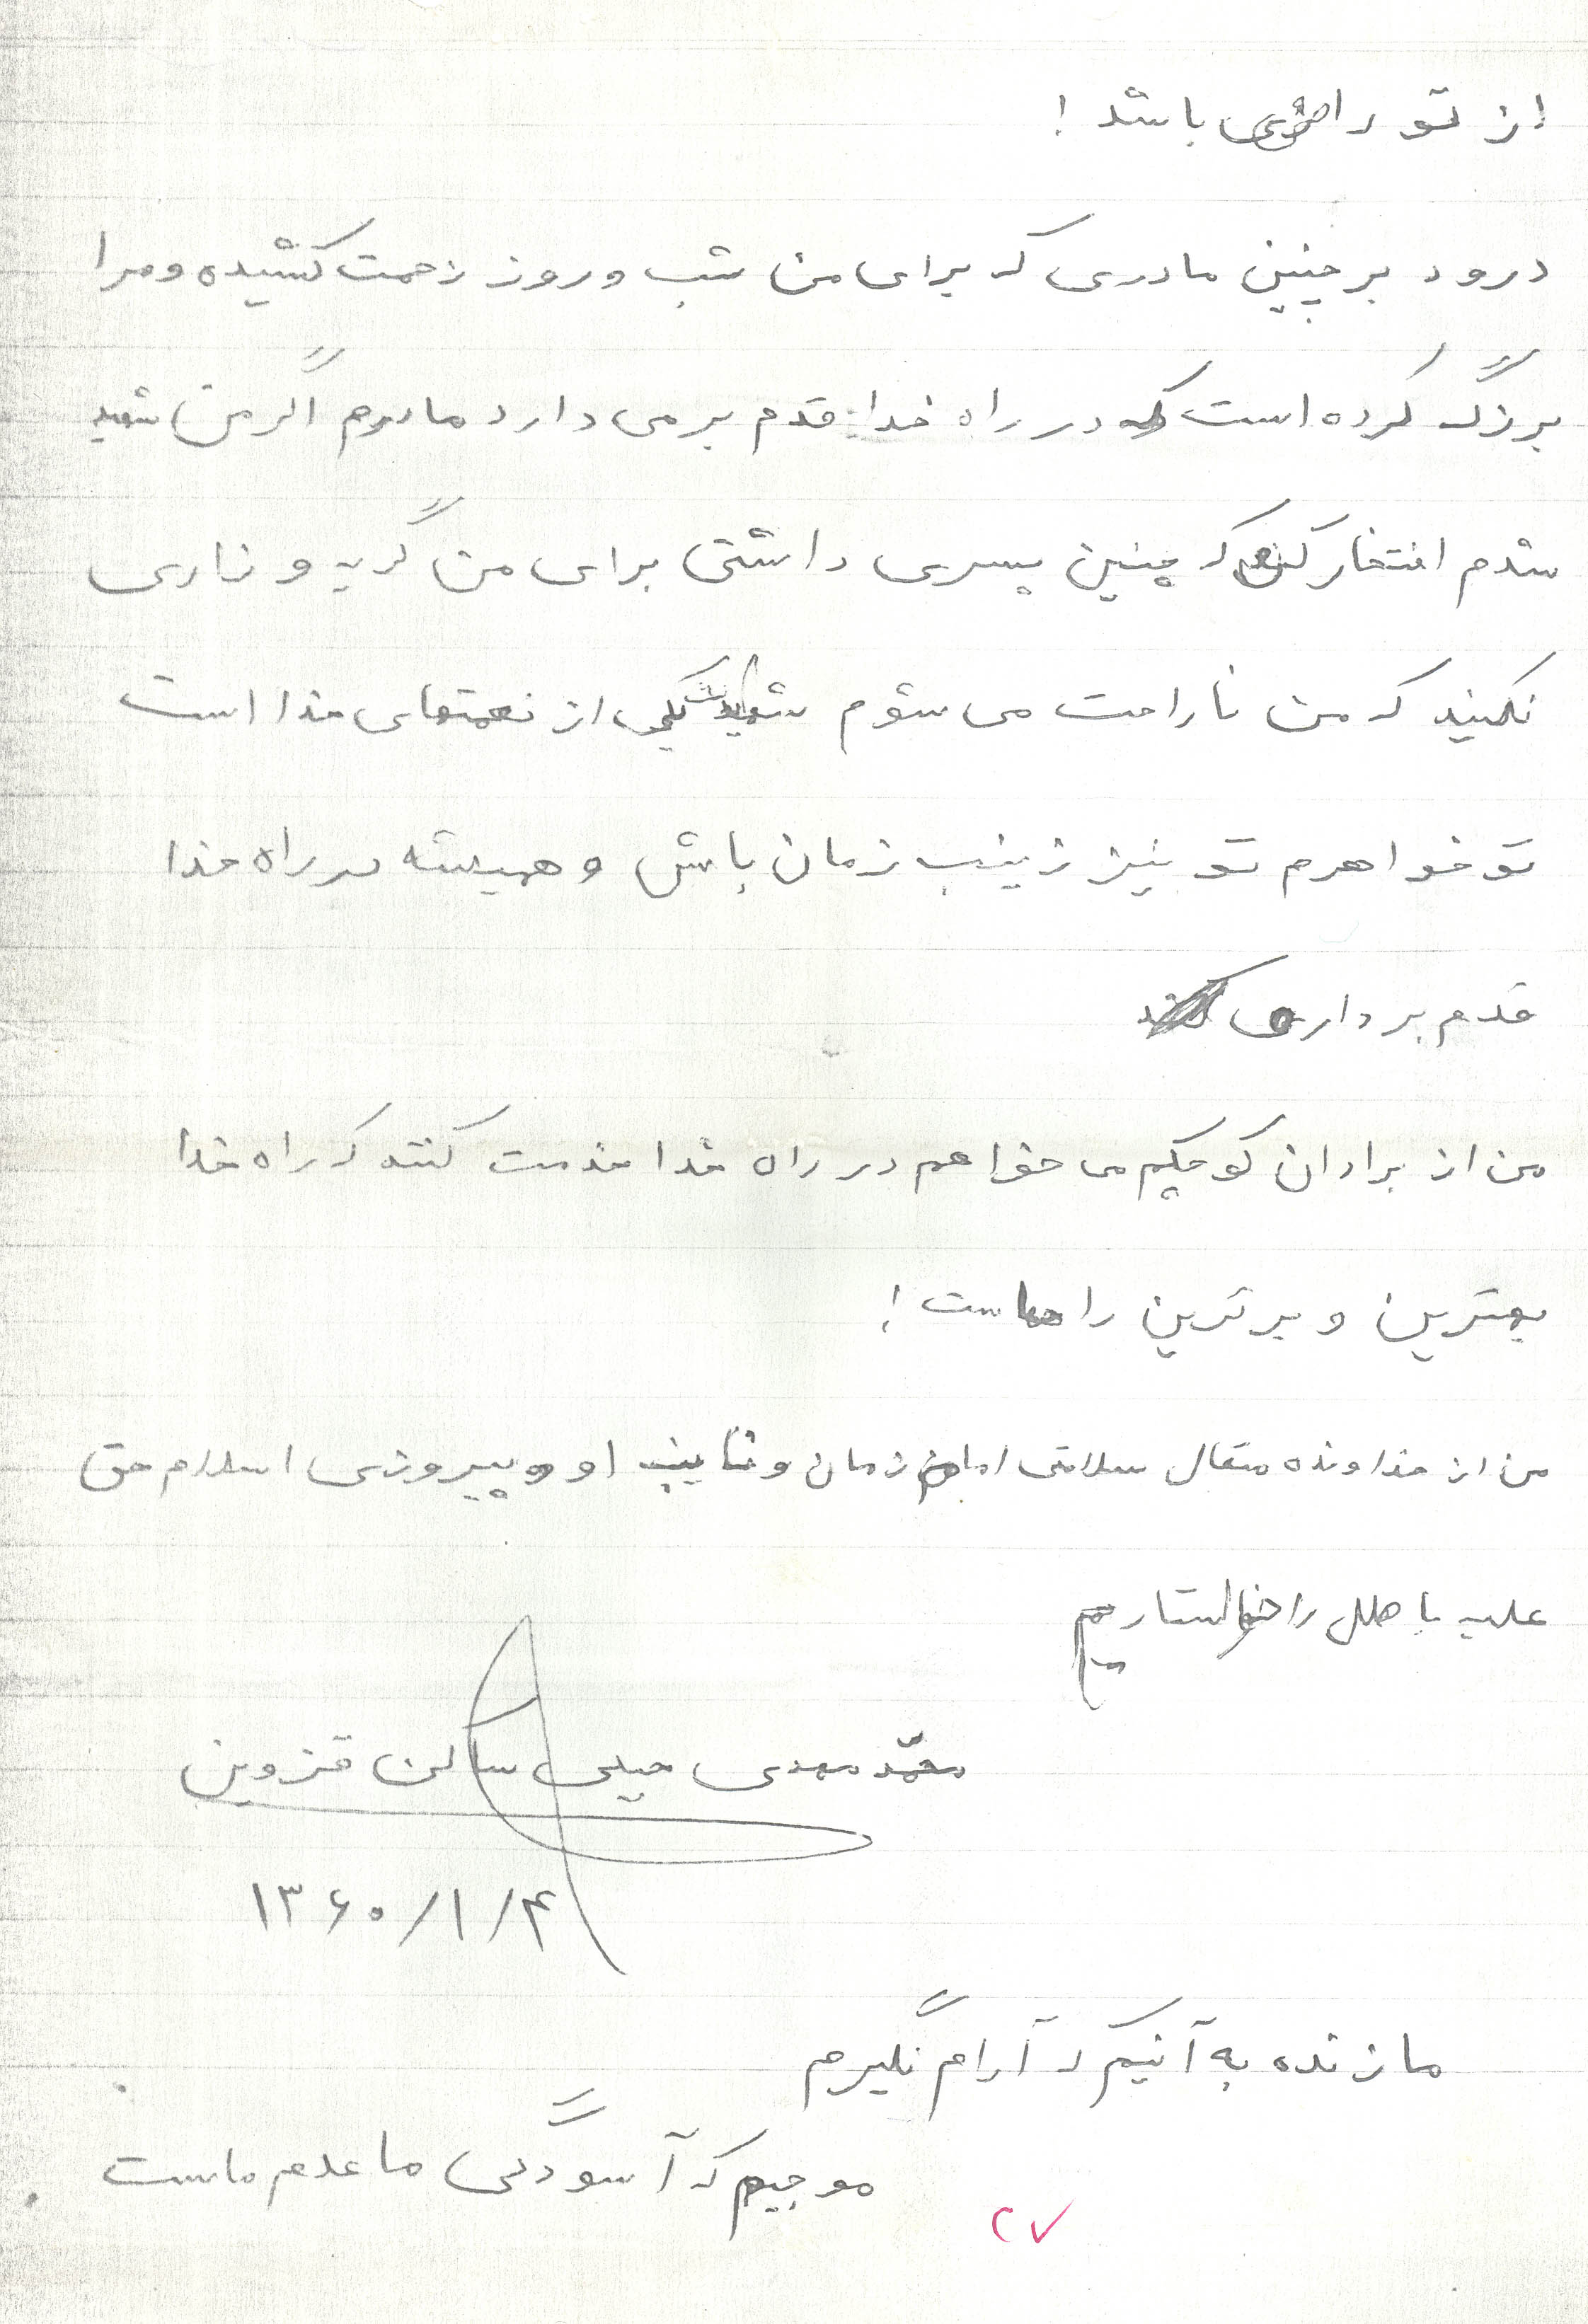 از تو راضی باشد !
درود بر چنین مادری که برای من شب و روز زحمت کشیده و مرا
بزرگ کرده است که در راه خدا قدم بر می دارد مادرم اگر من شهید
شدم افتخار کنی که چنین پسری داشتی برای من گریه و زاری
نکنید که من ناراحت می شوم شهید یکی از نعمتهای خدا است
تو خواهرم تو نیز زینب زمان باش و همیشه در راه خدا
قدم برداری
من از برادان کوچکم می خواهم در راه خدا خدمت کنند که راه خدا
بهترین و برترین راهاست !
من از خداونده متعال سلامتی امام زمان و نایب او و پیروزی اسلام حق
علیه باطل را خواستاریم
محمّد مهدی ساکن قزوین
۱۳۶۰/۱/۴
ما زنده به آنیم که آرام نگیرم
موجیم که آسودگی ما عدم ماست
۲۷